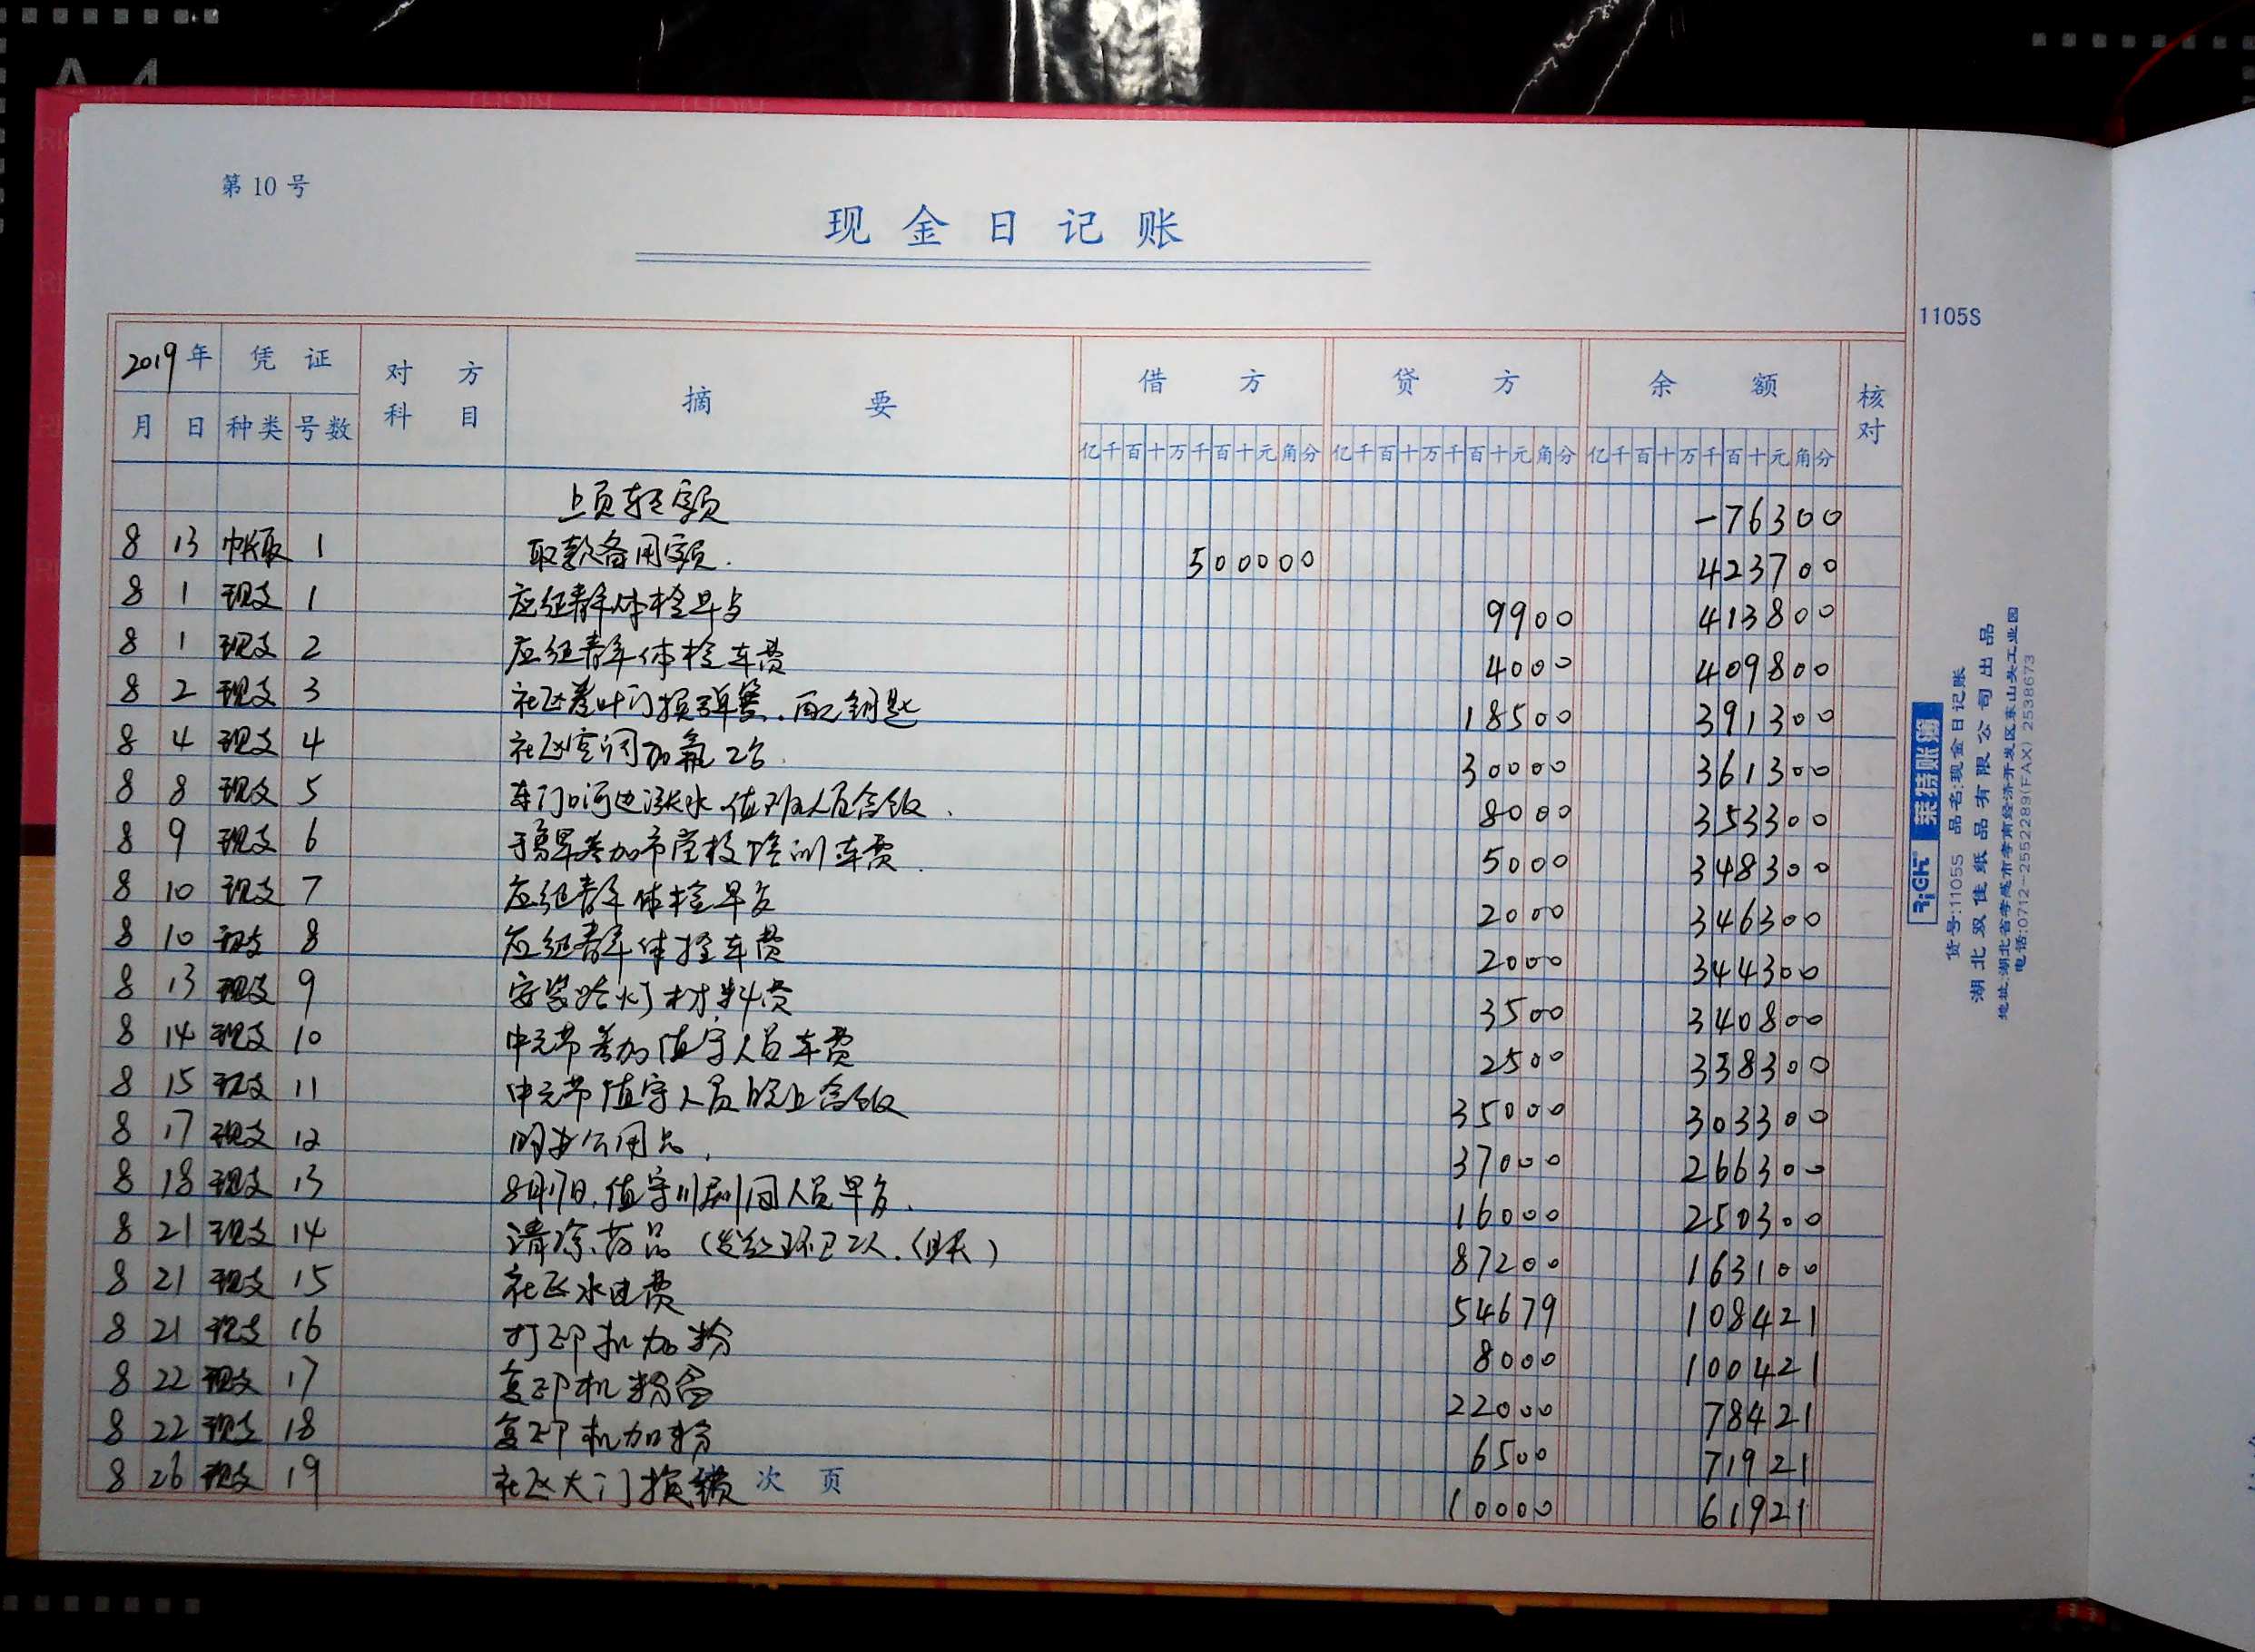 第 10 号
现 金 日 记 账
1105S
2019年 凭 证 对 方 科 目 摘 要 借 方 贷 方 余 额 核 对
月 日 种类 号数 亿千百十万千百十元角分 亿千百十万千百十元角分 亿千百十万千百十元角分
上页转额 -76300
8 13 1 取款备用额. 500000 423700
8 1 现支 1 应征青年体检早 9900 413800
8 1 现支 2 应征青年体检车费 4000 409800
8 2 现支 3 社区卷叶门换弹簧.配钥匙 18500 391300
8 4 现支 4 社区空调加氟2台. 30000 361300
8 8 现支 5 河边涨水.值班人员合饭. 8000 353300
8 9 现支 6 参加市党校培训车费. 5000 348300
8 10 现支 7 应征青年体检早 2000 346300
8 10 现支 8 应征青年体检车费 2000 344300
8 13 现支 9 安装路灯材料费 3500 340800
8 14 现支 10 中元节参加值守人员车费 2500 338300
8 15 现支 11 中元节值守人员晚上合饭 35000 303300
8 17 现支 12 购办公用品. 37000 266300
8 18 现支 13 8月17日.值守川剧团人员早 16000 250300
8 21 现支 14 清凉药品 87200 163100
8 21 现支 15 社区水电费 54679 108421
8 21 现支 16 打印机加粉 8000 100421
8 22 现支 17 复印机粉合 22000 78421
8 22 现支 18 复印机加粉 6500 71921
8 26 现支 19 社区大门换锁 次 页 10000 61921
RiGHT 莱特账簿
货号:1105S 品名:现金日记账
湖北双佳纸品有限公司出品
地址:湖北省孝感市孝南经济开发区东山头工业园
电话:0712-2552289(FAX) 2538673